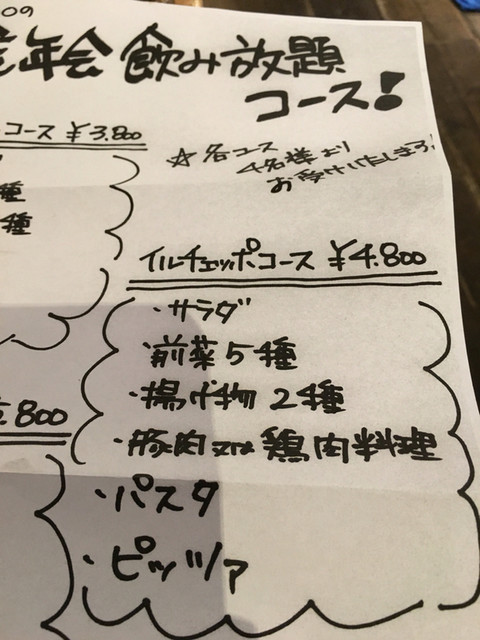 年会 飲み放題
コース!
コース ¥3.800
☆各コース
4名様より
お受けいたします!
種
種
イルチェッポコース ¥4.800
・サラダ
・前菜5種
・揚げ物 2種
・豚肉又は鶏肉料理
・パスタ
・ピッツァ
.800